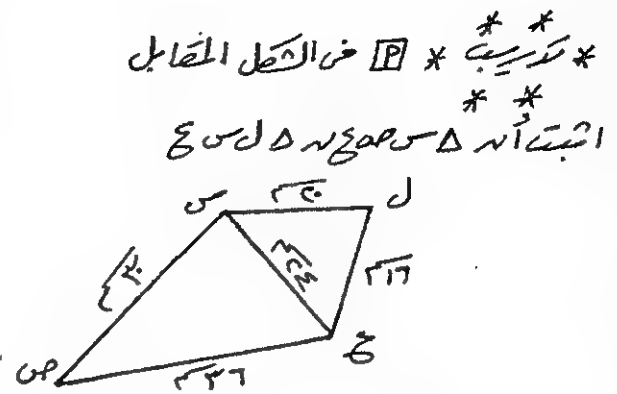 * تدريب * [P] في الشكل المقابل
اثبت أن Δ س ص ع ~ Δ ل س ع
س
ل
٢٠سم
٣٠سم
٢٤سم
١٦سم
ع
ص
٣٦سم